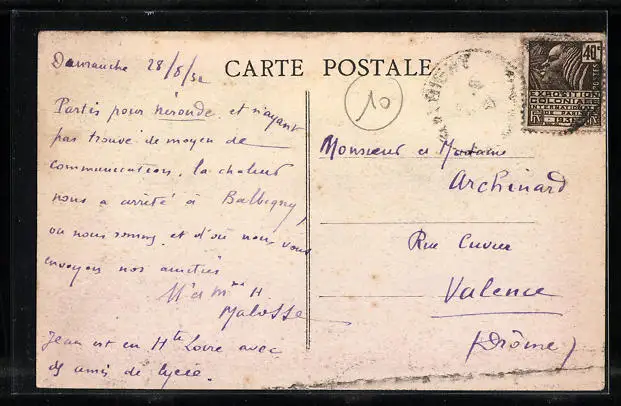 Dimanche 28/8/32
CARTE POSTALE
10
40c
POSTES
EXPOSITION
COLONIALE
INTERNATIONALE
PARIS
Partis pour Néronde et n'ayant
pas trouvé de moyen de
communication, la chaleur
nous a arrêté à Balbigny,
où nous sommes et d'où nous vous
envoyons nos amitiés
Mr et Mme H
Malosse
Jean est en Hte Loire avec
ds amis de lycée.
Monsieur et Madame
Archinard
Rue Cuvier
Valence
(Drôme)